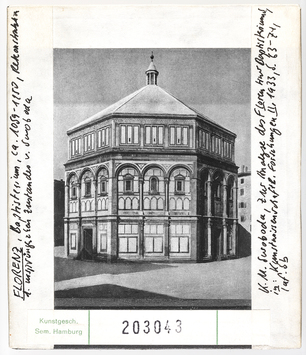 FLORENZ, Baptisterium, ca. 1059-1150, Rekonstruktion
d. ursprünglichen Zustandes v. Swoboda
K. M. Swoboda, Zur Analyse des Florentiner Baptisteriums,
in: Kunstwissenschaftl. Forschungen II, 1933, S. 63-74,
Kunstgesch.
Sem. Hamburg
203043